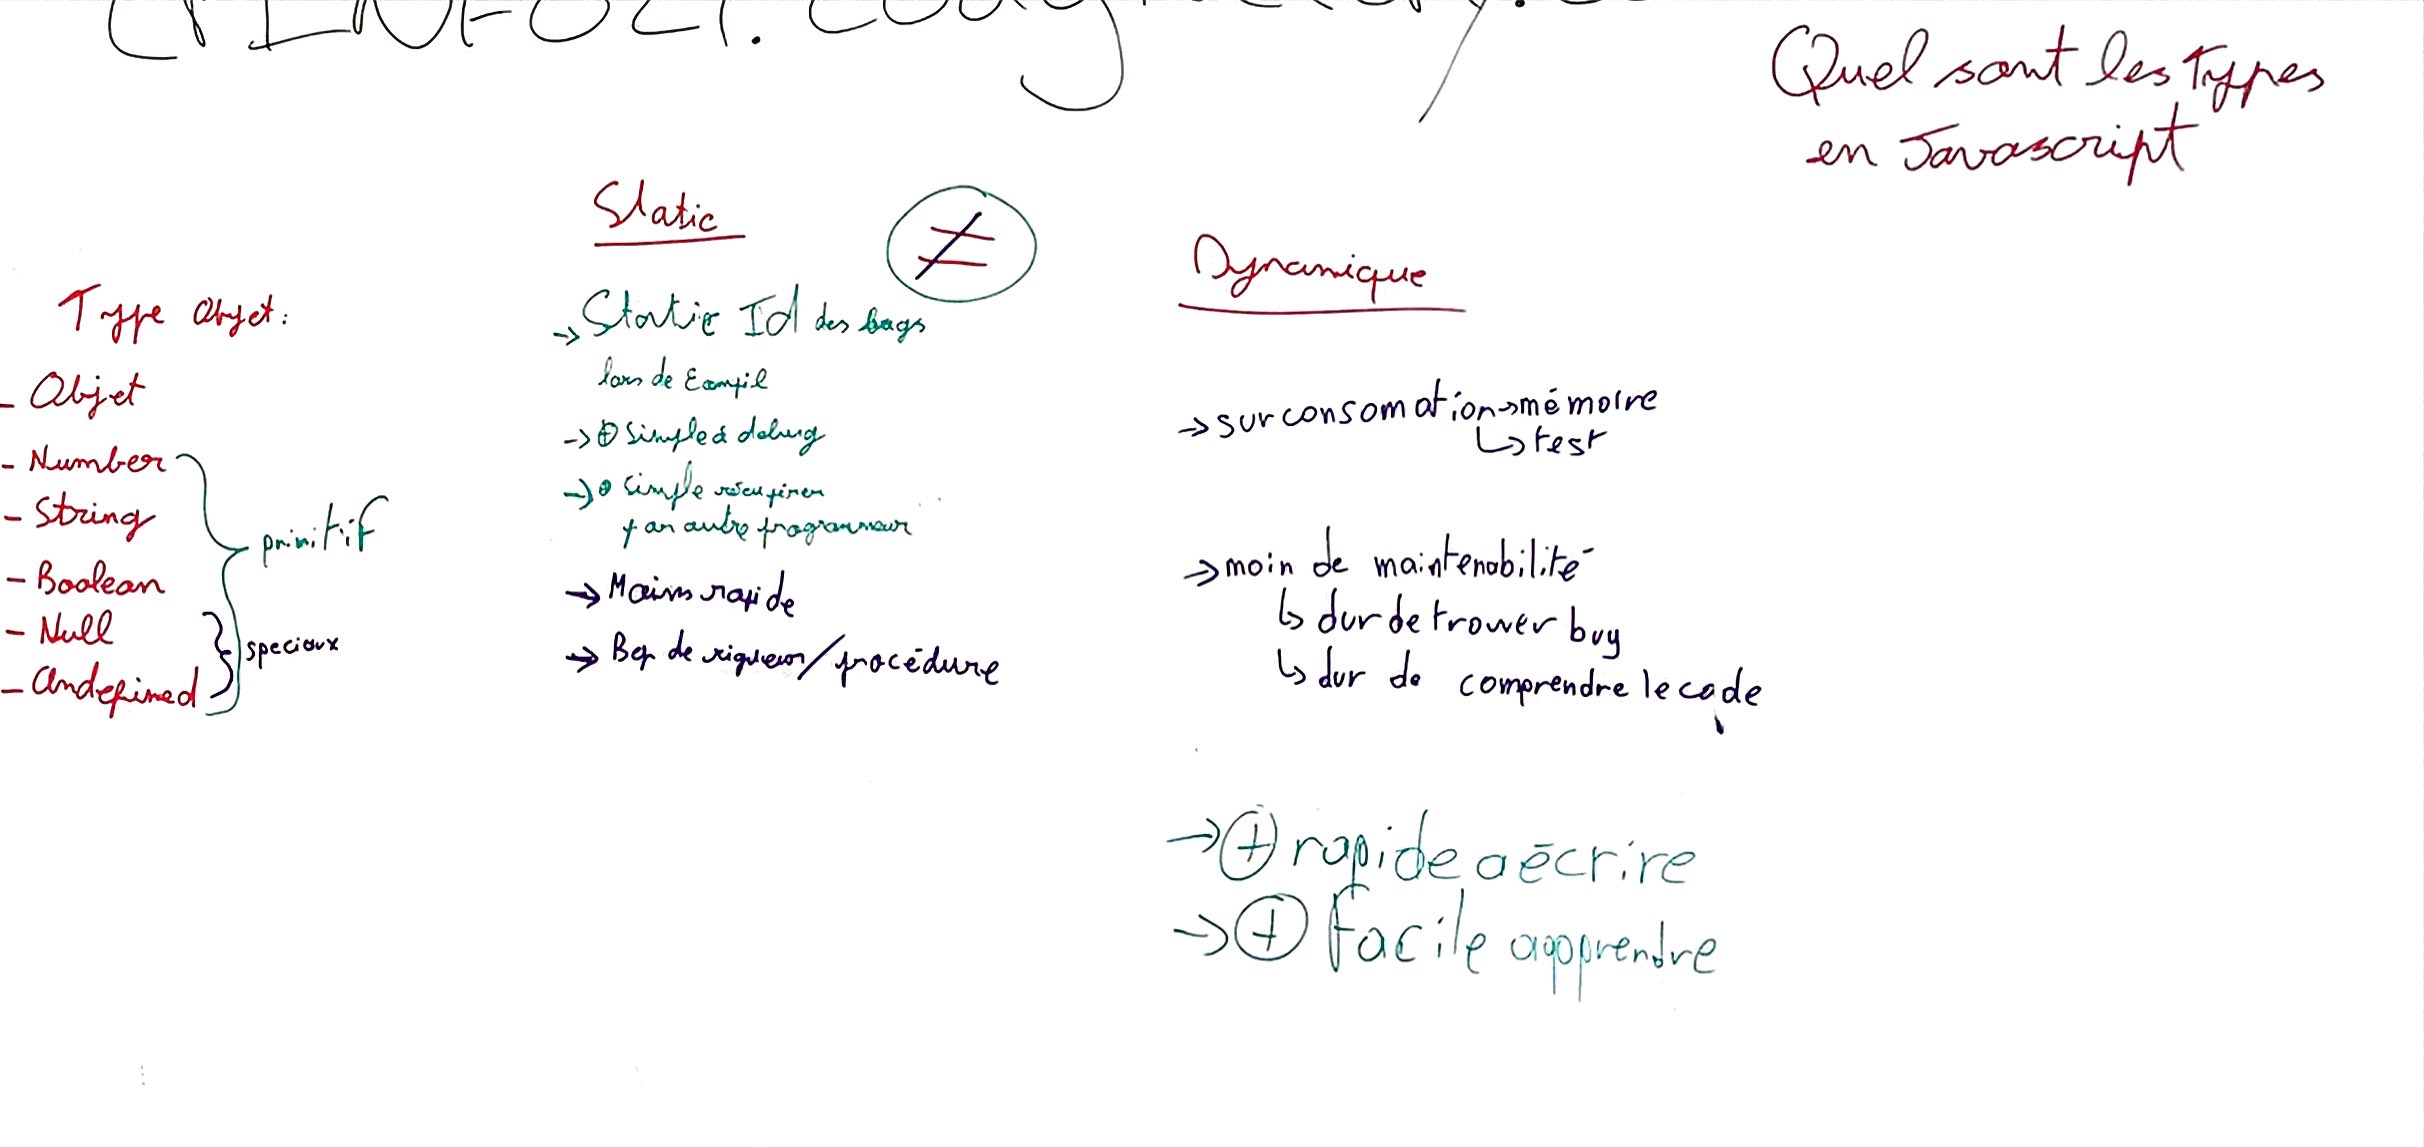 Quel sont les Types
en Javascript
Type Objet:
- Objet
- Number
- String
- Boolean
- Null
- Undefined
primitif
speciaux
Static
≠
→ Static Id des bugs
lors de compil
→ ⊕ simple à debug
→ ⊕ simple récupérer
autre programmeur
→ Moins rapide
→ Bcp de rigueur/procédure
Dynamique
→ surconsomation → mémoire
↳ test
→ moin de maintenabilité
↳ dur de trouver bug
↳ dur de comprendre le code
→ ⊕ rapide a écrire
→ ⊕ facile apprendre